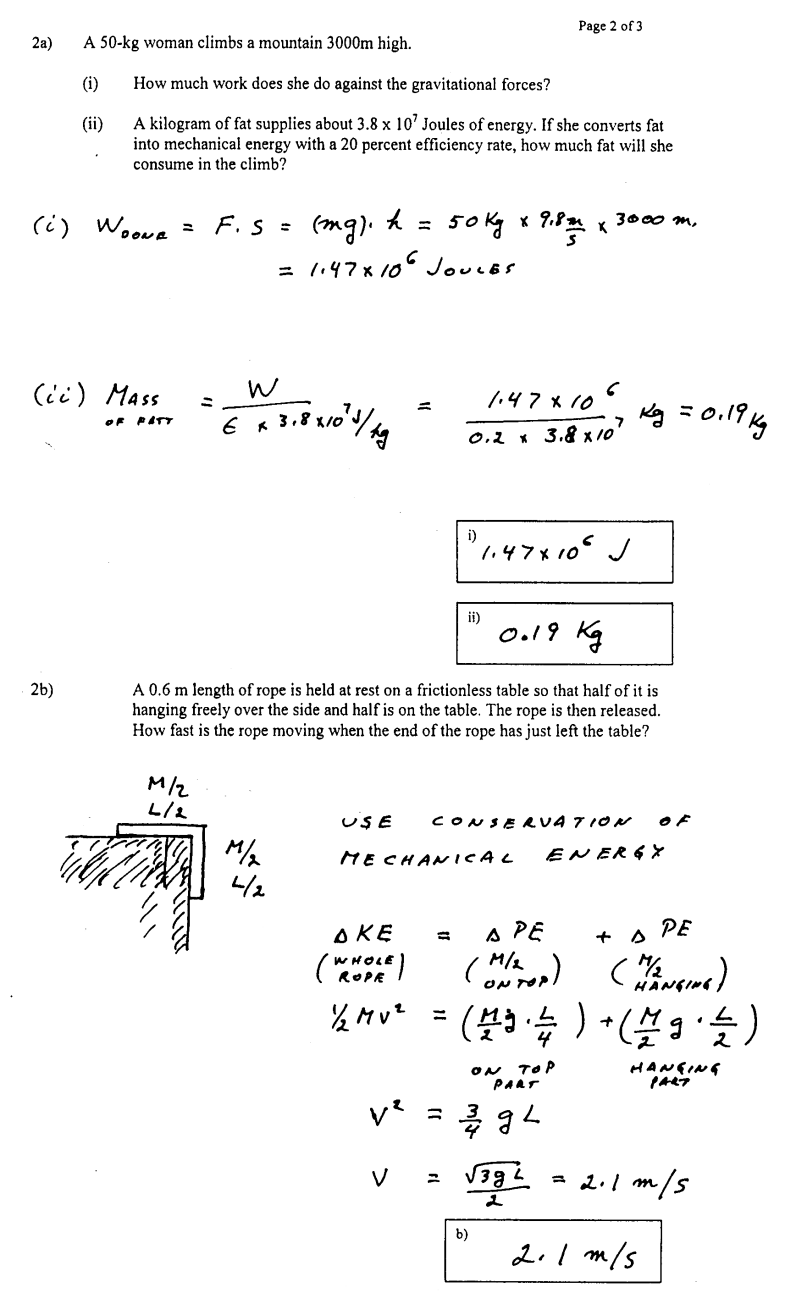 Page 2 of 3
2a) A 50-kg woman climbs a mountain 3000m high.
(i) How much work does she do against the gravitational forces?
(ii) A kilogram of fat supplies about 3.8 x 10⁷ Joules of energy. If she converts fat
into mechanical energy with a 20 percent efficiency rate, how much fat will she
consume in the climb?
(i) W DONE = F. S = (mg). h = 50 Kg x 9.8 m/s x 3000 m.
= 1.47 x 10⁶ JOULES
(ii) MASS OF FATT = W / (ϵ x 3.8 x10⁷ J/kg) = (1.47 x 10⁶) / (0.2 x 3.8 x10⁷) Kg = 0.19 Kg
i) 1.47 x 10⁶ J
ii) 0.19 Kg
2b) A 0.6 m length of rope is held at rest on a frictionless table so that half of it is
hanging freely over the side and half is on the table. The rope is then released.
How fast is the rope moving when the end of the rope has just left the table?
M/2
L/2
M/2
L/2
USE CONSERVATION OF
MECHANICAL ENERGY
Δ KE = Δ PE + Δ PE
(WHOLE ROPE) (M/2 ON TOP) (M/2 HANGING)
½ M V² = (M/2 g . L/4) + (M/2 g . L/2)
ON TOP PART HANGING PART
V² = 3/4 g L
V = √3gL / 2 = 2.1 m/s
b) 2.1 m/s